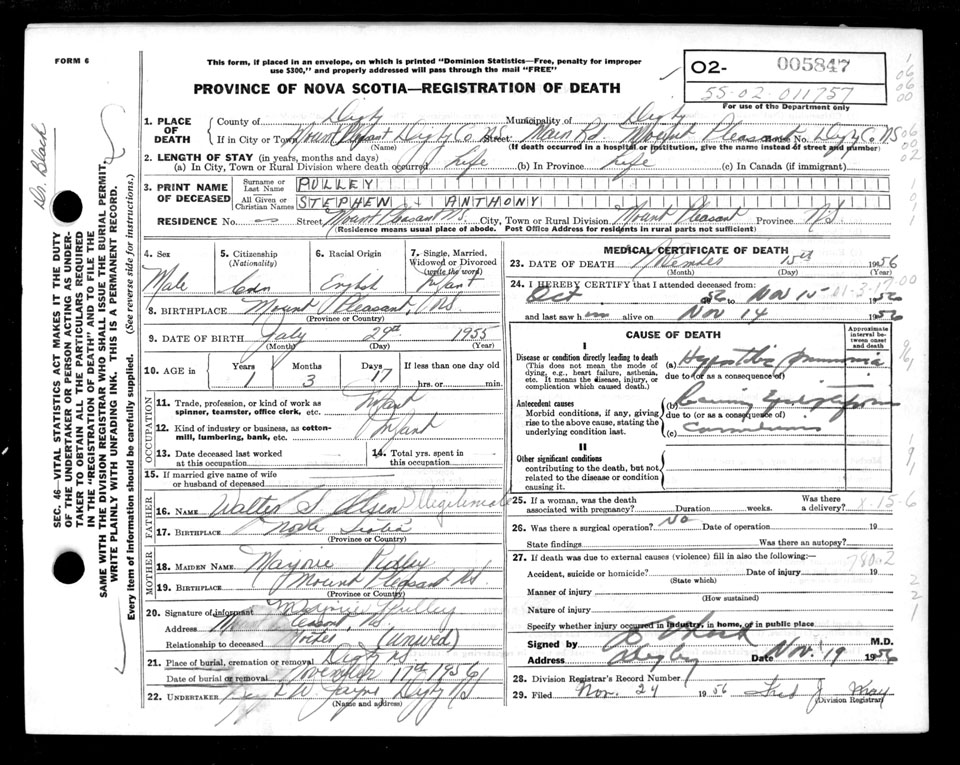 FORM 6
This form, if placed in an envelope, on which is printed "Dominion Statistics—Free, penalty for improper
use $300," and properly addressed will pass through the mail "FREE"
PROVINCE OF NOVA SCOTIA—REGISTRATION OF DEATH
O2- 005847
55-02-011757
For use of the Department only
1. PLACE OF DEATH
County of Digby Municipality of Digby
If in City or Town Mount Pleasant Digby Co. N.S. Street Main Rd. Mount Pleasant House No. Digby Co. N.S.
(Name) (If death occurred in a hospital or institution, give the name instead of street and number)
2. LENGTH OF STAY (in years, months and days)
(a) In City, Town or Rural Division where death occurred Life (b) In Province Life (c) In Canada (if immigrant)
3. PRINT NAME OF DECEASED
Surname or Last Name PULLEY
All Given or Christian Names STEPHEN ANTHONY
RESIDENCE No. Street Mount Pleasant N.S. City, Town or Rural Division Mount Pleasant Province N.S.
(Residence means usual place of abode. Post Office Address for residents in rural parts not sufficient)
4. Sex
Male
5. Citizenship
(Nationality)
Cdn
6. Racial Origin
English
7. Single, Married,
Widowed or Divorced
(write the word)
Infant
8. BIRTHPLACE Mount Pleasant, N.S.
(Province or Country)
9. DATE OF BIRTH July 29th 1955
(Month) (Day) (Year)
10. AGE in
Years Months Days If less than one day old
1 3 17 hrs. or min.
OCCUPATION
11. Trade, profession, or kind of work as
spinner, teamster, office clerk, etc. Infant
12. Kind of industry or business, as cotton-
mill, lumbering, bank, etc. Infant
13. Date deceased last worked
at this occupation
14. Total yrs. spent in
this occupation
15. If married give name of wife
or husband of deceased
FATHER
16. NAME Walter S. Olsen (Illegitimate
17. BIRTHPLACE Nova Scotia
(Province or Country)
MOTHER
18. MAIDEN NAME Marjorie
19. BIRTHPLACE Mount Pleasant N.S.
(Province or Country)
20. Signature of informant Marjorie Pulley
Address Mount Pleasant, N.S.
Relationship to deceased Mother (Unwed)
21. Place of burial, cremation or removal Digby N.S.
Date of burial or removal November 17th 1956
22. UNDERTAKER W Jayne Digby N.S.
(Name and address)
MEDICAL CERTIFICATE OF DEATH
23. DATE OF DEATH November 15th 1956
(Month) (Day) (Year)
24. I HEREBY CERTIFY that I attended deceased from:
Oct 56 to Nov 15 1956
and last saw him alive on Nov 14 1956
11-3-17-00
CAUSE OF DEATH
Approximate
interval be-
tween onset
and death
I
Disease or condition directly leading to death
(This does not mean the mode of
dying, e.g., heart failure, asthenia,
etc. It means the disease, injury, or
complication which caused death.)
(a) Hypostatic Pneumonia
due to (or as a consequence of)
Antecedent causes
Morbid conditions, if any, giving
rise to the above, stating the
underlying condition last.
(b)
due to (or as a consequence of)
(c) Convulsions
II
Other significant conditions
contributing to the death, but not
related to the disease or condition
causing it.
25. If a woman, was the death
associated with pregnancy? Duration weeks.
Was there
a delivery?
X-15-6
26. Was there a surgical operation? No Date of operation 19
State findings Was there an autopsy?
27. If death was due to external causes (violence) fill in also the following:
780.2
Accident, suicide or homicide? Date of injury 19
(State which)
Manner of injury
(How sustained)
Nature of injury
Specify whether injury occurred in industry, in home, or in public place
Signed by D. Black M.D.
Address Digby Date Nov. 19 1956
28. Division Registrar's Record Number
29. Filed Nov. 24 1956 Fred J. Wray
Division Registrar
D. Black
SEC. 46—VITAL STATISTICS ACT MAKES IT THE DUTY
OF THE UNDERTAKER OR PERSON ACTING AS UNDER-
TAKER TO OBTAIN ALL THE PARTICULARS REQUIRED
IN THE "REGISTRATION OF DEATH" AND TO FILE THE
SAME WITH THE DIVISION REGISTRAR WHO SHALL ISSUE THE BURIAL PERMIT.
WRITE PLAINLY WITH UNFADING INK. THIS IS A PERMANENT RECORD.
Every item of information should be carefully supplied. (See reverse side for instructions.)